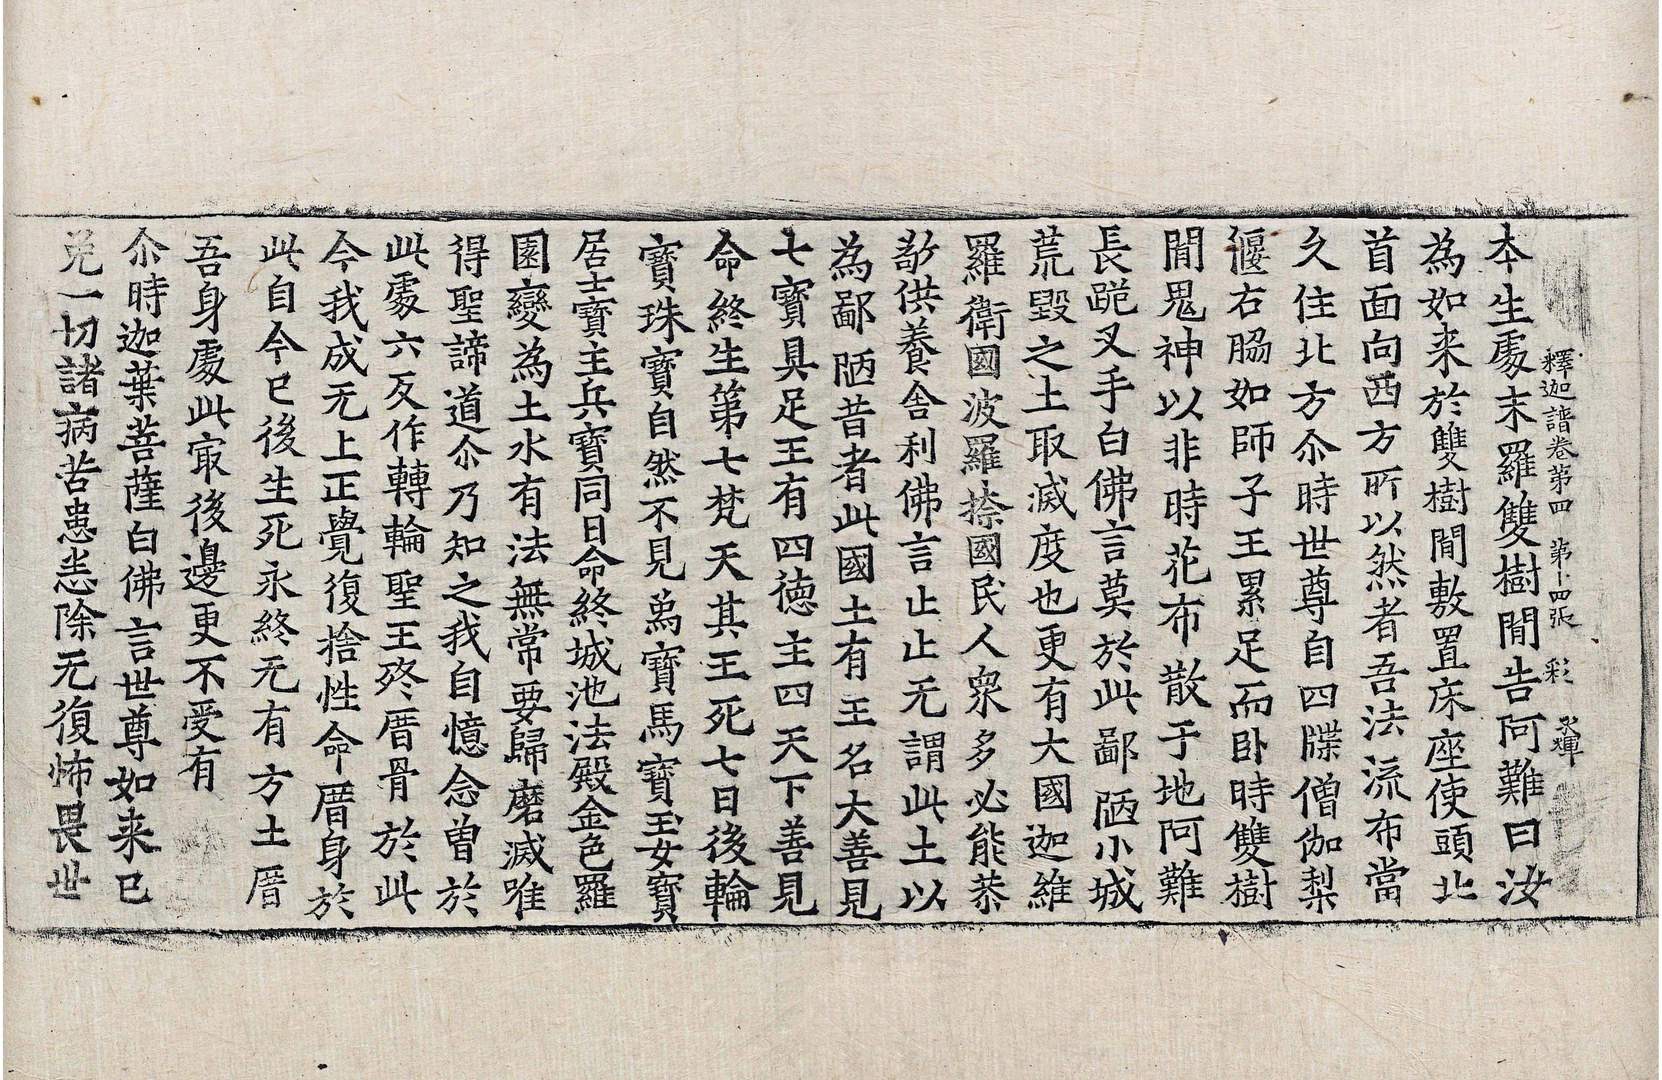 釋迦譜卷第四 第十四張 彩
本生處末羅雙樹閒告阿難曰汝
為如来於雙樹閒敷置床座使頭北
首面向西方所以然者吾法流布當
久住北方尒時世尊自四牒僧伽梨
偃右脇如師子王累足而卧時雙樹
閒鬼神以非時花布散于地阿難
長跪叉手白佛言莫於此鄙陋小城
荒毀之土取滅度也更有大國迦維
羅衛國波羅捺國民人衆多必能恭
敬供養舍利佛言止止无謂此土以
為鄙陋昔者此國土有王名大善見
七寶具足王有四德主四天下善見
命終生第七梵天其王死七日後輪
寶珠寶自然不見為寶馬寶玉女寶
居士寶主兵寶同日命終城池法殿金色羅
園變為土水有法無常要歸磨滅唯
得聖諦道尒乃知之我自憶念曽於
此處六反作轉輪聖王終厝骨於此
今我成无上正覺復捨性命厝身於
此自今已後生死永終无有方土厝
吾身處此冣後邊更不受有
尒時迦葉菩薩白佛言世尊如来已
免一切諸病苦患悉除无復怖畏世